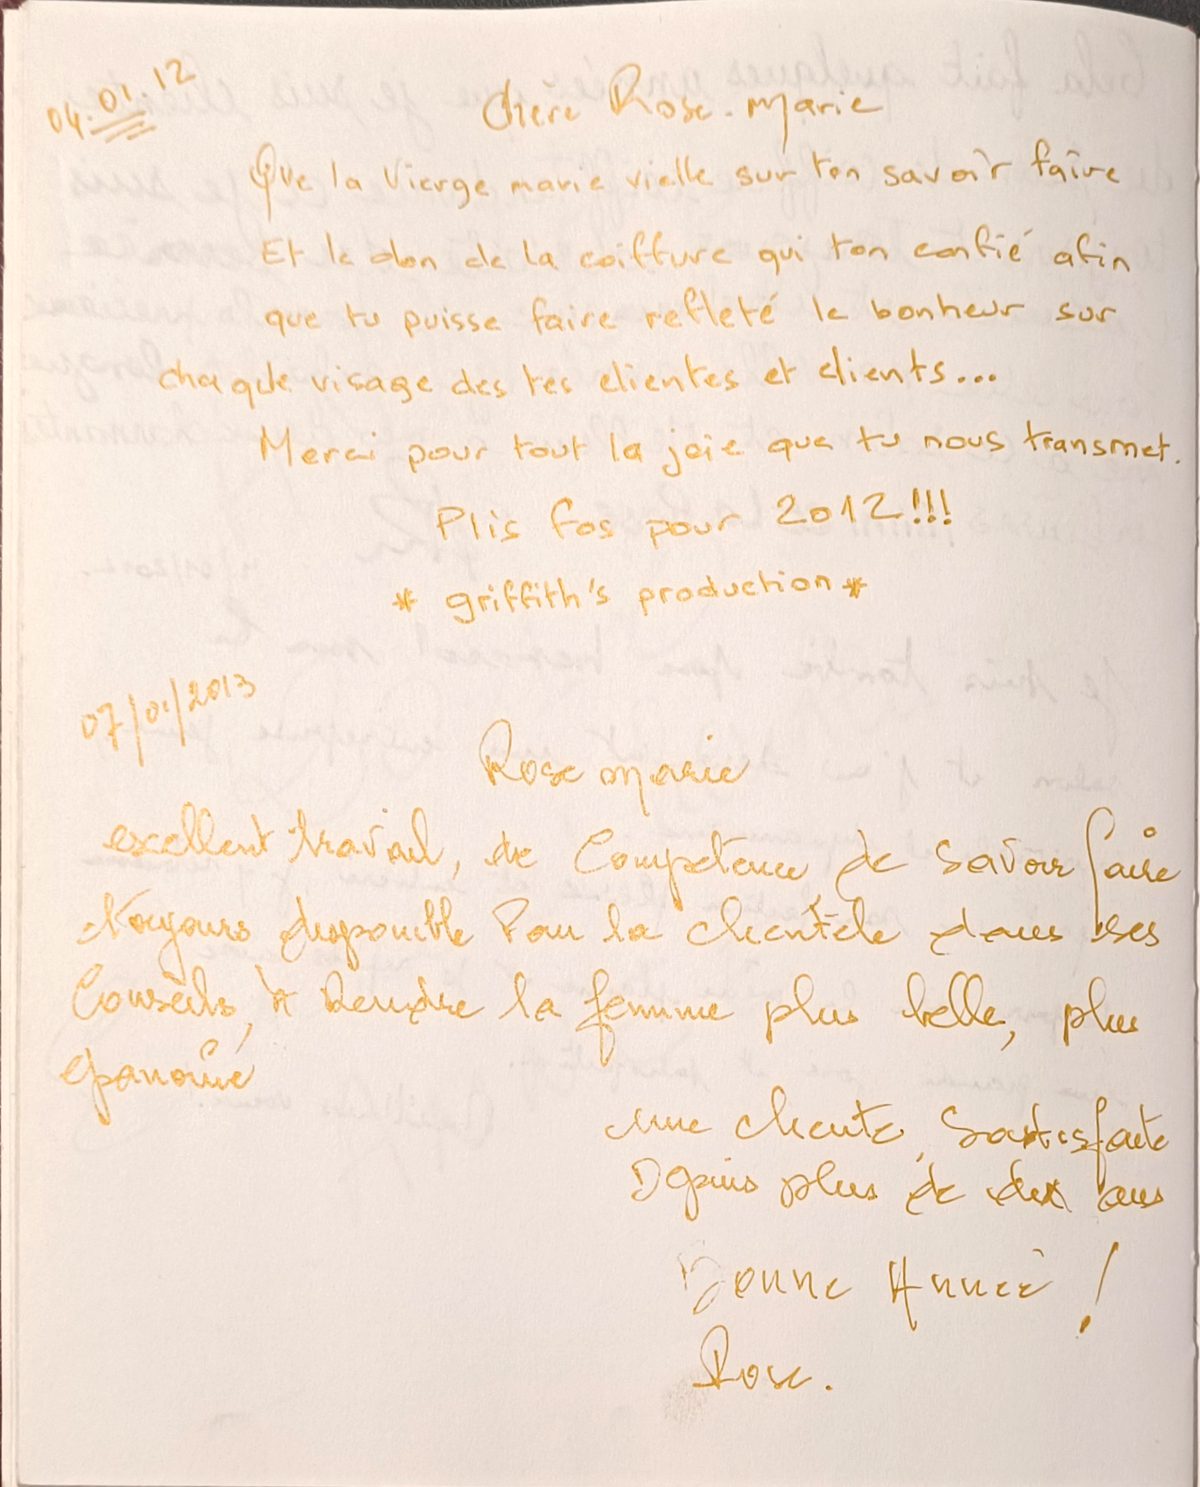 04.01.12
Chere Rose-Marie
Que la Vierge marie vielle sur ton savoir faire
Et le don de la coiffure qui ton confié afin
que tu puisse faire refleté le bonheur sur
chaque visage des tes clientes et clients...
Merci pour tout la joie que tu nous transmet.
Plis fos pour 2012!!!
* griffith's production *
07/01/2013
Rose marie
excellent travail, de Competence de Savoir faire
toujours disponible Pour la clientèle dans ses
Conseils, à Rendre la femme plus belle, plus
épanouie
une cliente, Satisfaite
Depuis plus de deux ans
Bonne Année !
Rose.